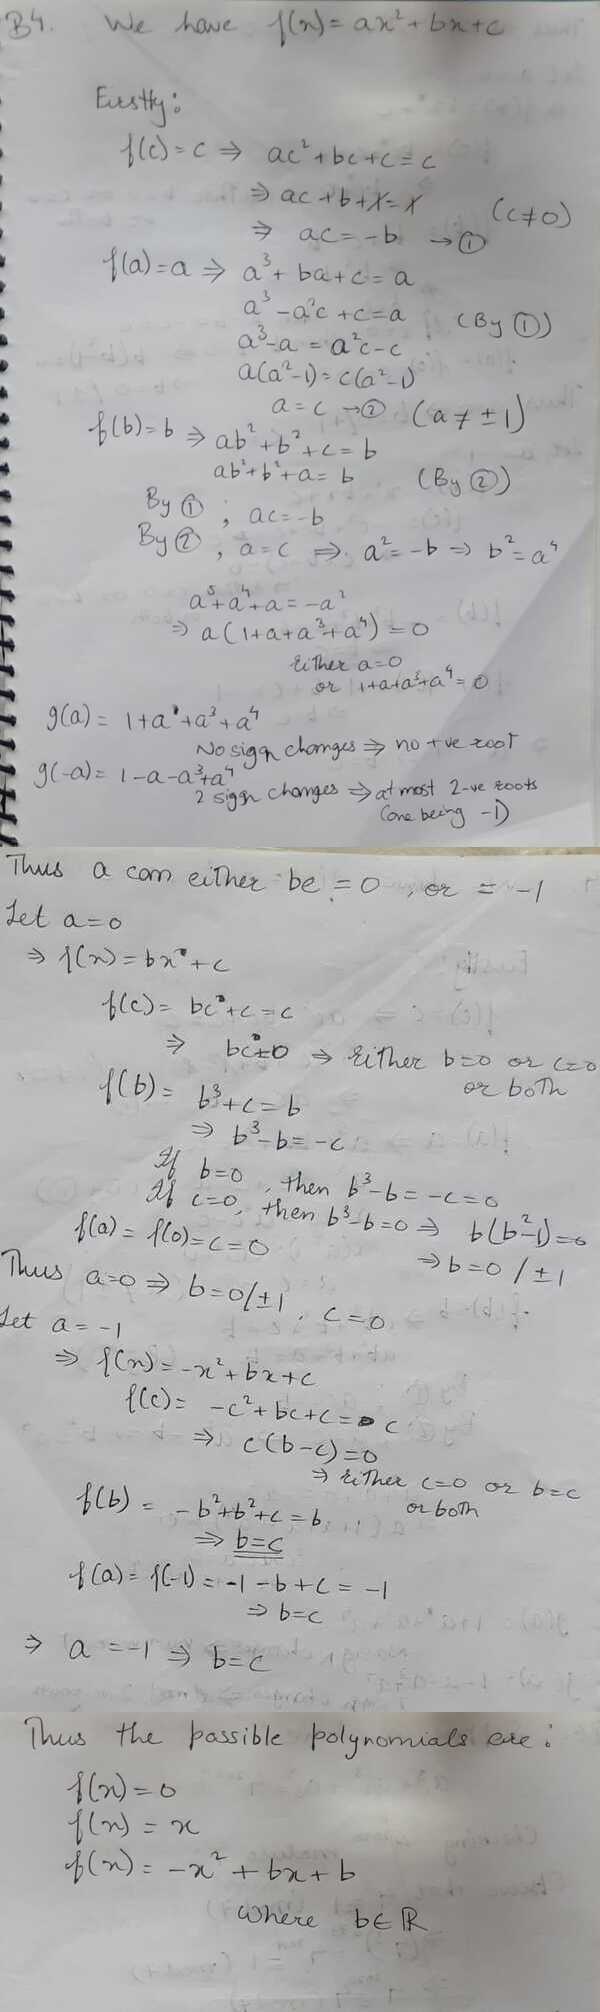 B4. We have f(x) = ax² + bx + c
Firstly:
f(c) = c ⇒ ac² + bc + c = c
⇒ ac + b + x = x (c ≠ 0)
⇒ ac = -b → ①
f(a) = a ⇒ a³ + ba + c = a
a³ - a²c + c = a (By ①)
a³ - a = a²c - c
a(a² - 1) = c(a² - 1)
a = c → ② (a ≠ ±1)
f(b) = b ⇒ ab² + b² + c = b
ab² + b² + a = b (By ②)
By ① ; ac = -b
By ② , a = c ⇒ a² = -b ⇒ b² = a⁴
a⁵ + a⁴ + a = -a²
⇒ a(1 + a + a³ + a⁴) = 0
Either a = 0
or 1 + a + a³ + a⁴ = 0
g(a) = 1 + a + a³ + a⁴
No sign changes ⇒ no +ve root
g(-a) = 1 - a - a³ + a⁴
2 sign changes ⇒ at most 2 -ve roots
(one being -1)
Thus a can either be = 0, or = -1
Let a = 0
⇒ f(x) = bx + c
f(c) = bc + c = c
⇒ bc = 0 ⇒ Either b = 0 or c = 0
or both
f(b) = b³ + c = b
⇒ b³ - b = -c
If b = 0, then b³ - b = -c = 0
If c = 0, then b³ - b = 0 ⇒ b(b² - 1) = 0
f(a) = f(0) = c = 0 ⇒ b = 0 / ±1
Thus a = 0 ⇒ b = 0 / ±1, c = 0
Let a = -1
⇒ f(x) = -x² + bx + c
f(c) = -c² + bc + c = c
⇒ c(b - c) = 0
⇒ Either c = 0 or b = c
or both
f(b) = -b² + b² + c = b
⇒ b = c
f(a) = f(-1) = -1 - b + c = -1
⇒ b = c
⇒ a = -1 ⇒ b = c
Thus the possible polynomials are:
f(x) = 0
f(x) = x
f(x) = -x² + bx + b
where b ∈ ℝ